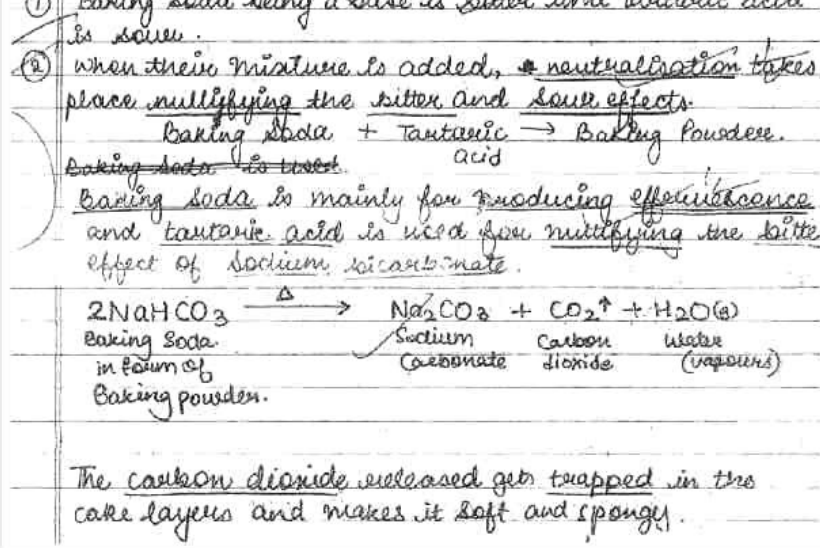 ① Baking Soda being a base is bitter and tartaric acid
is sour.
② When their mixture is added, neutralisation takes
place nullifying the bitter and sour effects.
Baking Soda + Tartaric → Baking Powder.
acid
Baking Soda is used
Baking Soda is mainly for producing effervescence
and tartaric acid is used for nullifying the bitte
effect of Sodium bicarbonate.
2NaHCO3 —Δ→ Na2CO3 + CO2↑ + H2O(g)
Baking Soda. Sodium Carbon Water
in form of Carbonate dioxide (vapours)
Baking powder.
The carbon dioxide released gets trapped in the
cake layers and makes it soft and spongy.